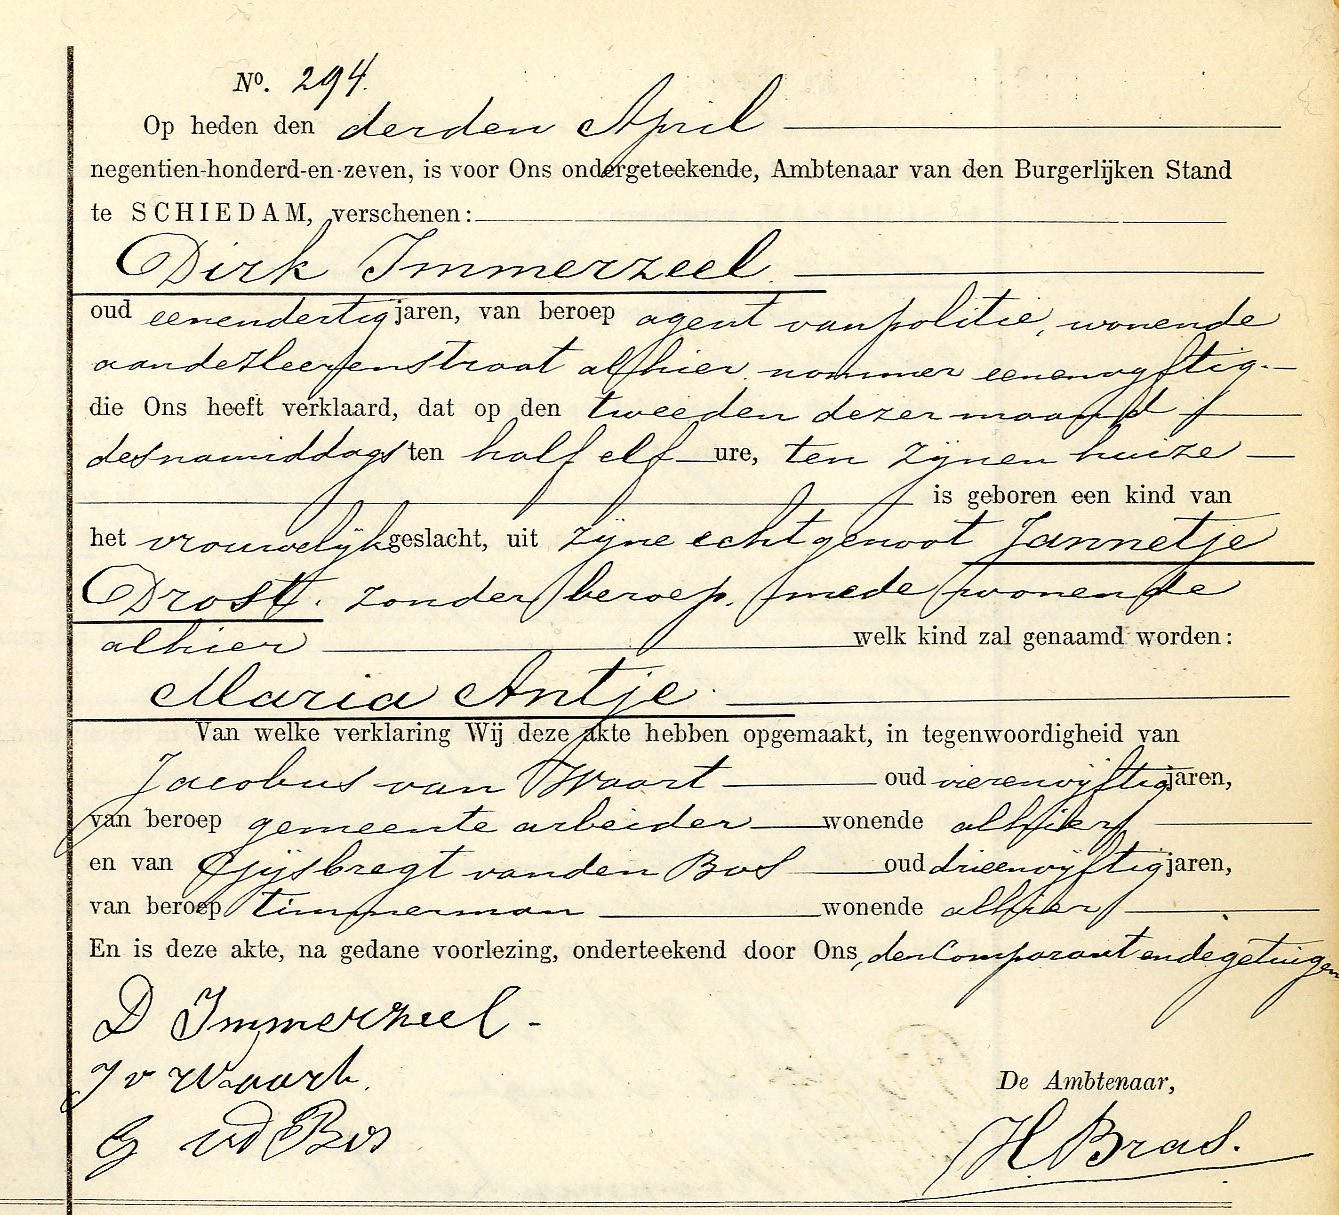 No. 294.
Op heden den derden April
negentien-honderd-en-zeven, is voor Ons ondergeteekende, Ambtenaar van den Burgerlijken Stand
te SCHIEDAM, verschenen:
Dirk Immerzeel
oud eenendertig jaren, van beroep agent van politie, wonende
aan de straat alhier nommer eenenvyftig.
die Ons heeft verklaard, dat op den tweeden dezer maand
des namiddags ten half elf ure, ten zynen huize
is geboren een kind van
het vrouwelyk geslacht, uit zyne echtgenoot Jannetje
Drost. zonder beroep, mede wonende
alhier welk kind zal genaamd worden:
Maria Antje.
Van welke verklaring Wij deze akte hebben opgemaakt, in tegenwoordigheid van
Jacobus van Waart oud vierenvyftig jaren,
van beroep gemeente arbeider wonende alhier
en van Gysbregt van den Bos oud drieenvyftig jaren,
van beroep timmerman wonende alhier
En is deze akte, na gedane voorlezing, onderteekend door Ons, den Comparant en de getuigen
D Immerzeel.
J v Waart.
G vd Bos
De Ambtenaar,
H. Bras.